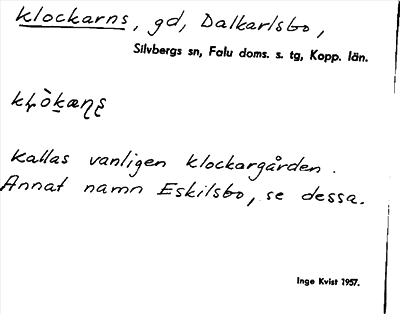 Klockarns, gd, Dalkarlsbo,
Silvbergs sn, Falu doms. s. tg, Kopp. län.
Kallas vanligen klockargården.
Annat namn Eskilsbo, se dessa.
Inge Kvist 1957.